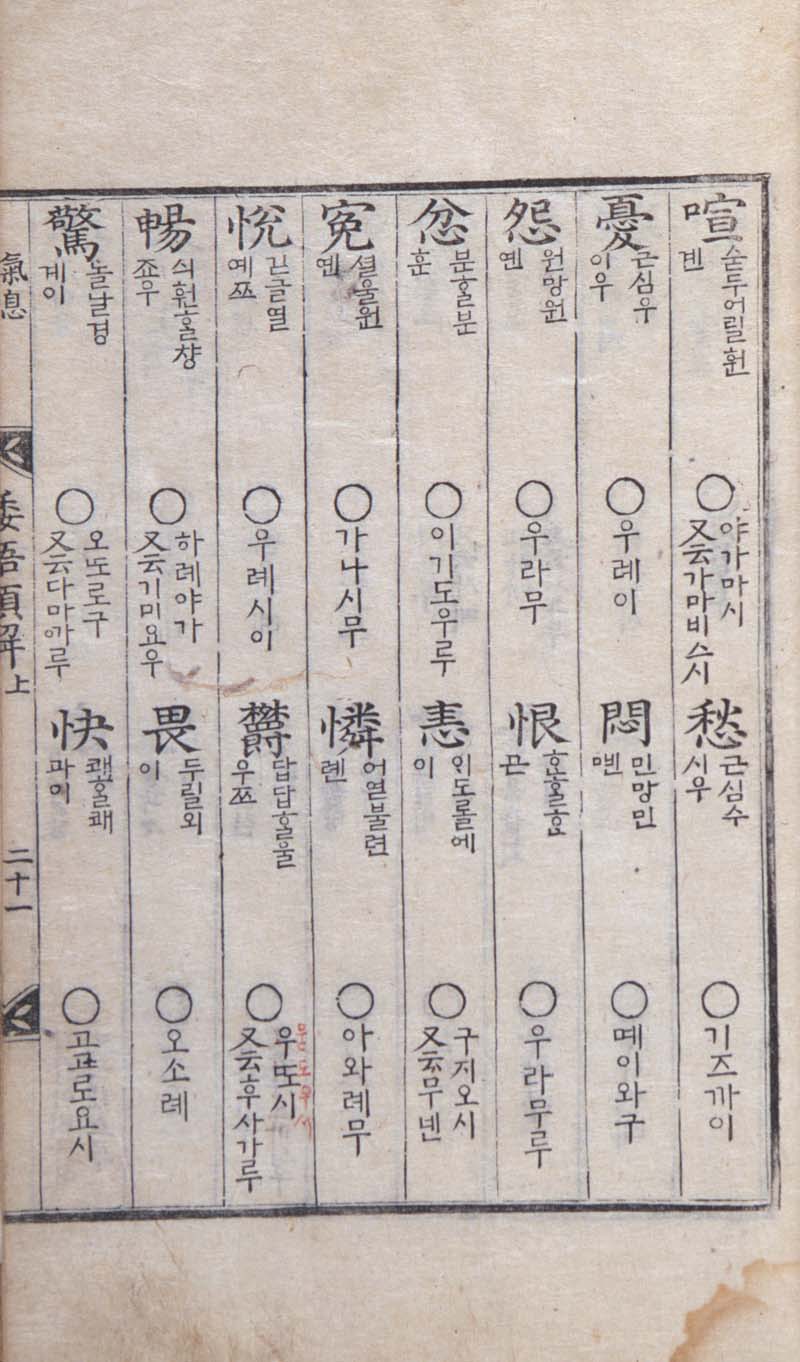 喧 손두어릴훤 겐 ○ 야가마시 又云가마비스시
愁 근심수 시우 ○ 기즈까이
憂 근심우 이우 ○ 우례이
悶 민망민 몐 ○ 몌이와구
怨 원망원 옌 ○ 우라무
恨 ᄒᆞᆫᄒᆞᆯᄒᆞᆫ 곤 ○ 우라무루
忿 분ᄒᆞᆯ분 훈 ○ 이기도우루
恚 인도롤에 이 ○ 구지오시 又云무넨
寃 셜울원 옌 ○ 가나시무
憐 어엳불련 롄 ○ 아와례무
悅 긷글열 예쯔 ○ 우례시이
鬱 답답ᄒᆞᆯ울 우쯔 ○ 우또시 又云후사가루
暢 싀훤ᄒᆞᆯ챵 죠우 ○ 하례야가 又云기미요우
畏 두릴외 이 ○ 오소례
驚 놀날경 계이 ○ 오또로구 又云다마까루
快 쾌ᄒᆞᆯ쾌 과이 ○ 고고로요시
氣息
倭語類解 上
二十一